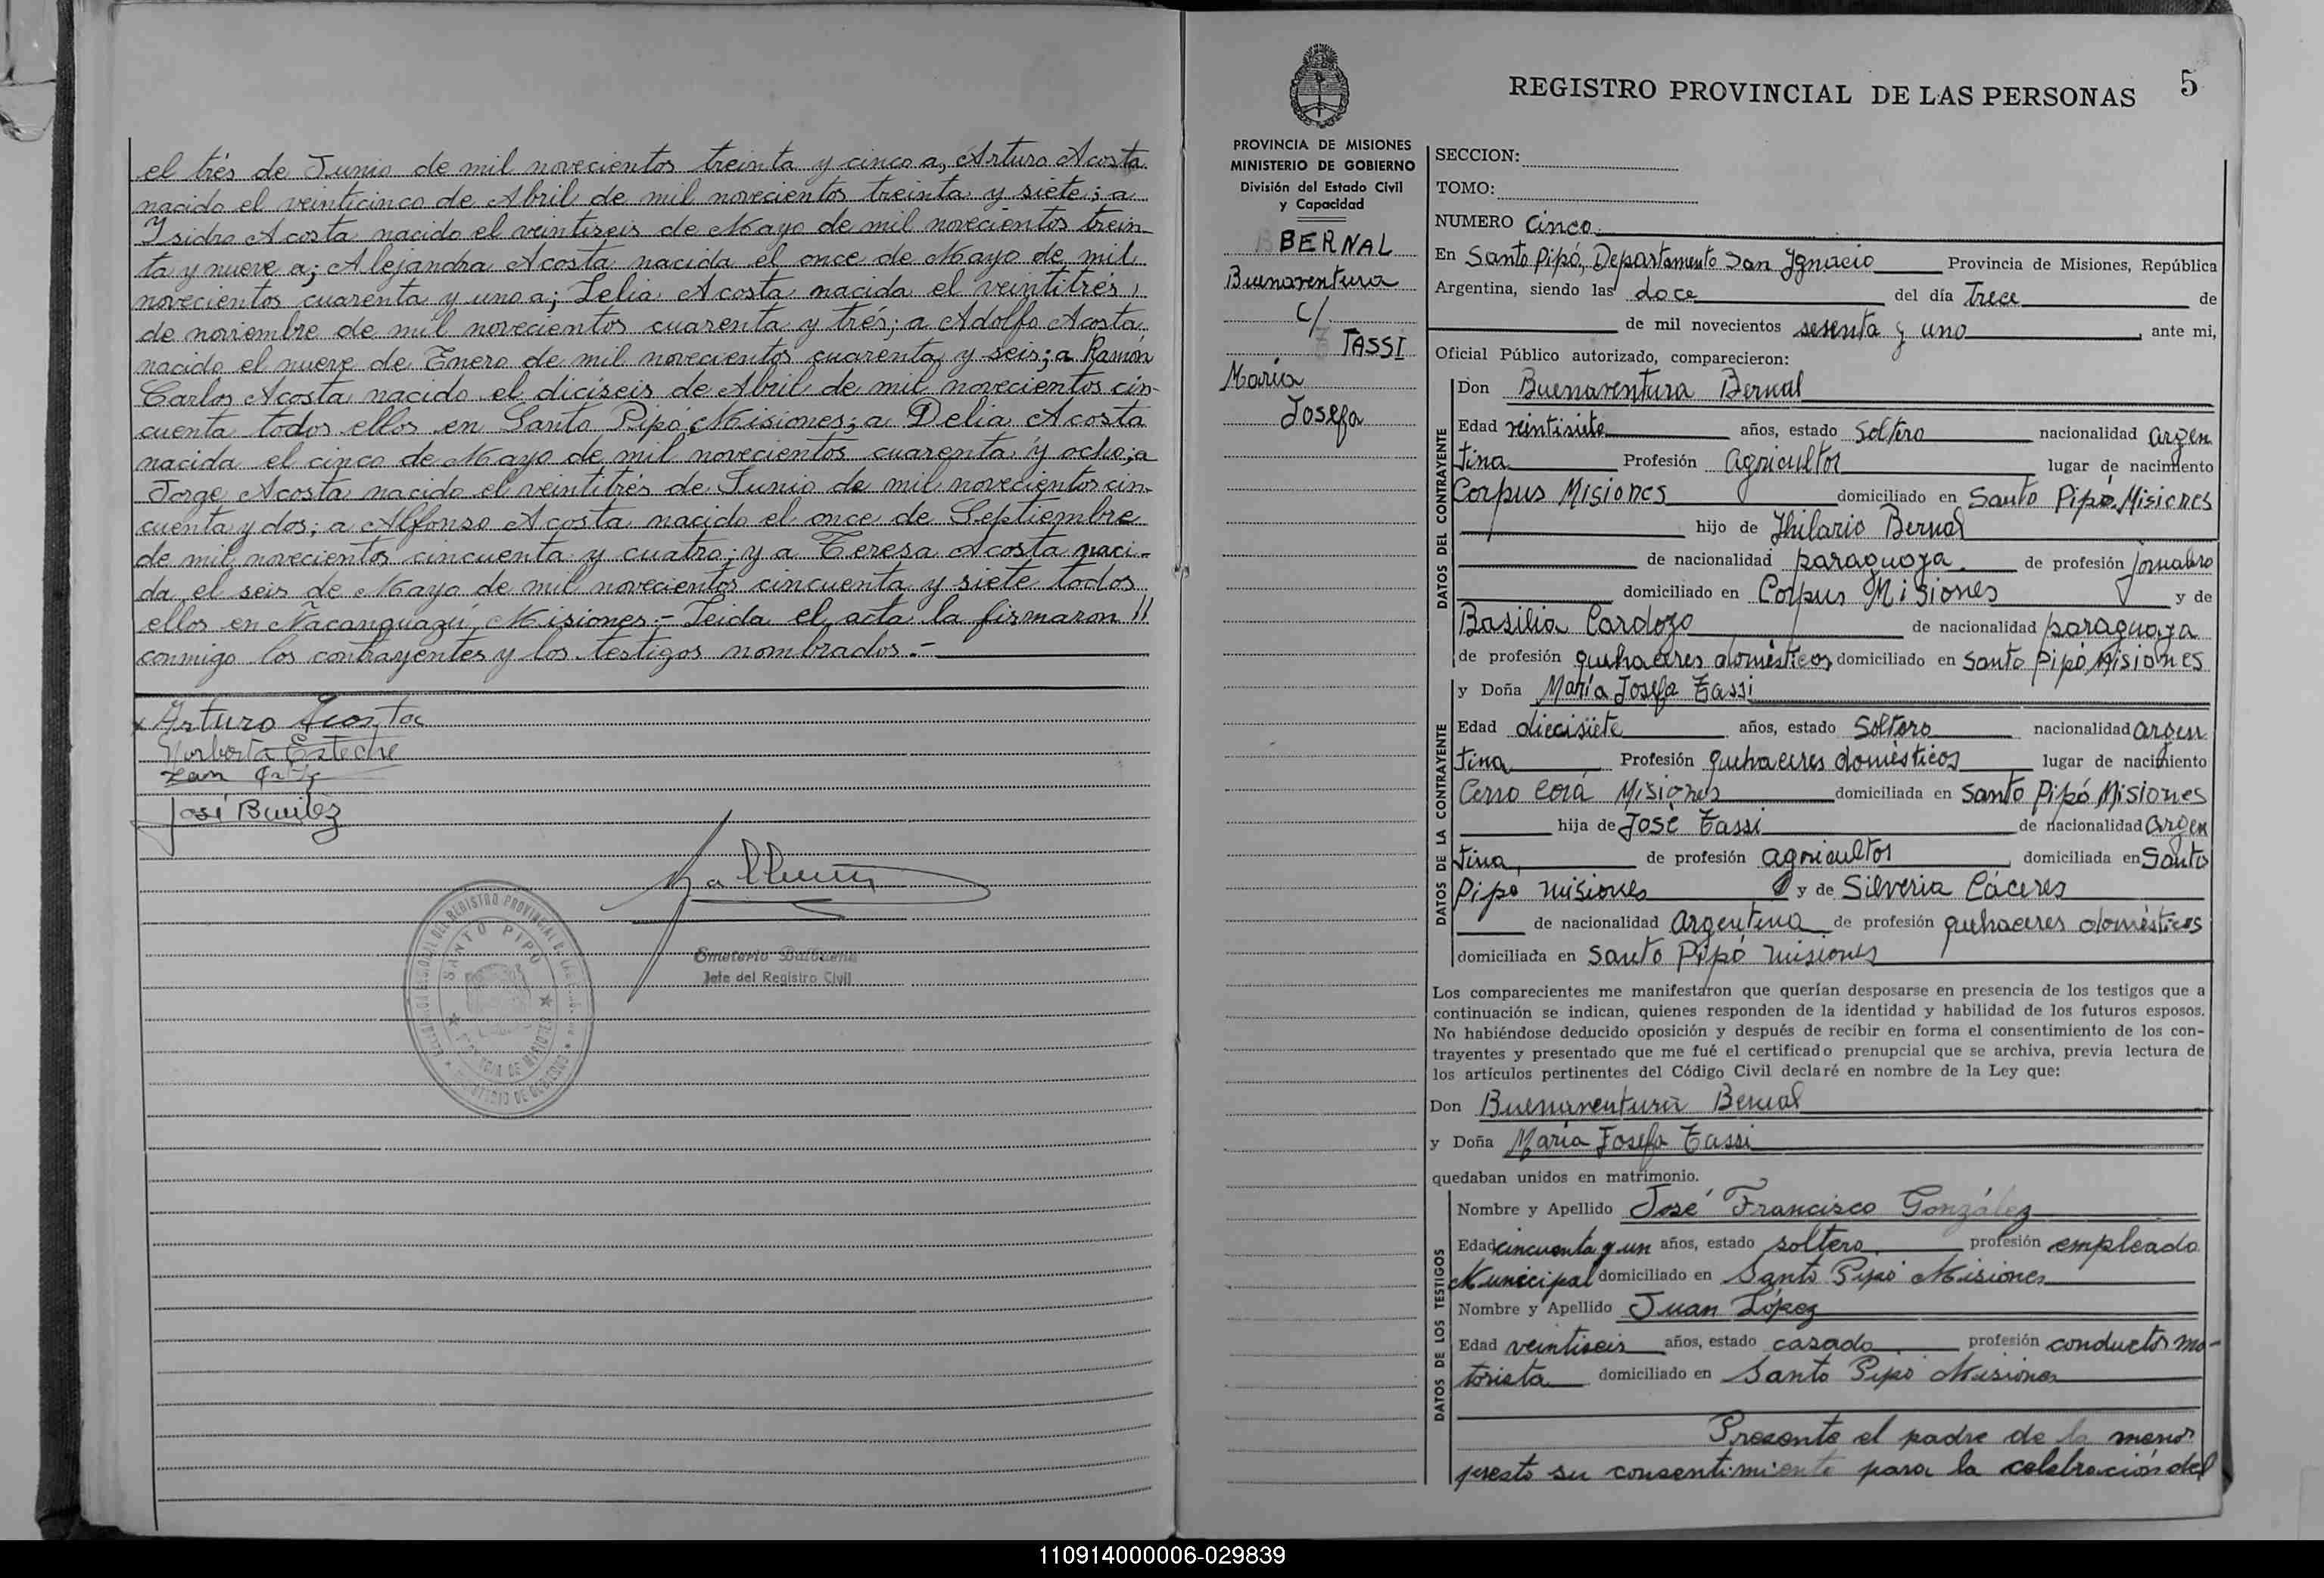 el trés de Junio de mil novecientos treinta y cinco a, Arturo Acosta
nacido el veinticinco de Abril de mil novecientos treinta y siete; a
Ysidro Acosta nacido el veintiseis de Mayo de mil novecientos trein-
ta y nueve a; Alejandra Acosta nacida el once de Mayo de mil
novecientos cuarenta y uno a; Lelia Acosta nacida el veintitrés
de noviembre de mil novecientos cuarenta y trés; a Adolfo Acosta
nacido el nueve de Enero de mil novecientos cuarenta y seis; a Ramón
Carlos Acosta nacido el diciseis de Abril de mil novecientos cin-
cuenta todos ellos en Santo Pipó, Misiones; a Delia Acosta
nacida el cinco de Mayo de mil novecientos cuarenta y ocho; a
Jorge Acosta nacido el veintitrés de Junio de mil novecientos cin-
cuenta y dos; a Alfonso Acosta nacido el once de Septiembre
de mil novecientos cincuenta y cuatro; y a Teresa Acosta naci-
da el seis de Mayo de mil novecientos cincuenta y siete todos
ellos en Ñacanguazú, Misiones.- Leida el acta la firmaron //
conmigo los contrayentes y los testigos nombrados.-
Arturo Acosta
Norberta Esteche
José Benitez
SANTO PIPO
Jefe del Registro Civil
5
REGISTRO PROVINCIAL DE LAS PERSONAS
PROVINCIA DE MISIONES
MINISTERIO DE GOBIERNO
División del Estado Civil
y Capacidad
BERNAL
Buenaventura
c/
TASSI
María
Josefa
SECCION:
TOMO:
NUMERO Cinco
En Santo Pipó, Departamento San Ygnacio Provincia de Misiones, República
Argentina, siendo las doce del día trece de
de mil novecientos sesenta y uno, ante mi,
Oficial Público autorizado, comparecieron:
DATOS DEL CONTRAYENTE
Don Buenaventura Bernal
Edad veintisiete años, estado Soltero nacionalidad argen
tina Profesión agricultor lugar de nacimiento
Corpus Misiones domiciliado en Santo Pipó Misiones
hijo de Ihilario Bernal
de nacionalidad paraguaya de profesión jornalero
domiciliado en Corpus Misiones y de
Basilia Cardozo de nacionalidad paraguaya
de profesión quehaceres domésticos domiciliado en Santo Pipó Misiones
DATOS DE LA CONTRAYENTE
y Doña María Josefa Tassi
Edad diecisiete años, estado Soltero nacionalidad argen
tina Profesión quehaceres domésticos lugar de nacimiento
Cerro Corá Misiones domiciliada en Santo Pipó Misiones
hija de José Tassi de nacionalidad argen
tina, de profesión agricultor domiciliada en Santo
Pipó misiones y de Silveria Cáceres
de nacionalidad argentina de profesión quehaceres domésticos
domiciliada en Santo Pipó misiones
Los comparecientes me manifestaron que querían desposarse en presencia de los testigos que a
continuación se indican, quienes responden de la identidad y habilidad de los futuros esposos.
No habiéndose deducido oposición y después de recibir en forma el consentimiento de los con-
trayentes y presentado que me fué el certificado prenupcial que se archiva, previa lectura de
los artículos pertinentes del Código Civil declaré en nombre de la Ley que:
Don Buenaventura Bernal
y Doña María Josefa Tassi
quedaban unidos en matrimonio.
DATOS DE LOS TESTIGOS
Nombre y Apellido José Francisco González
Edad cincuenta y un años, estado soltero profesión empleado
Municipal domiciliado en Santo Pipó Misiones
Nombre y Apellido Juan López
Edad veintiseis años, estado casado profesión conductor mo-
torista domiciliado en Santo Pipó Misiones
Presente el padre de la menor
presto su consentimiento para la celebración del
110914000006-029839